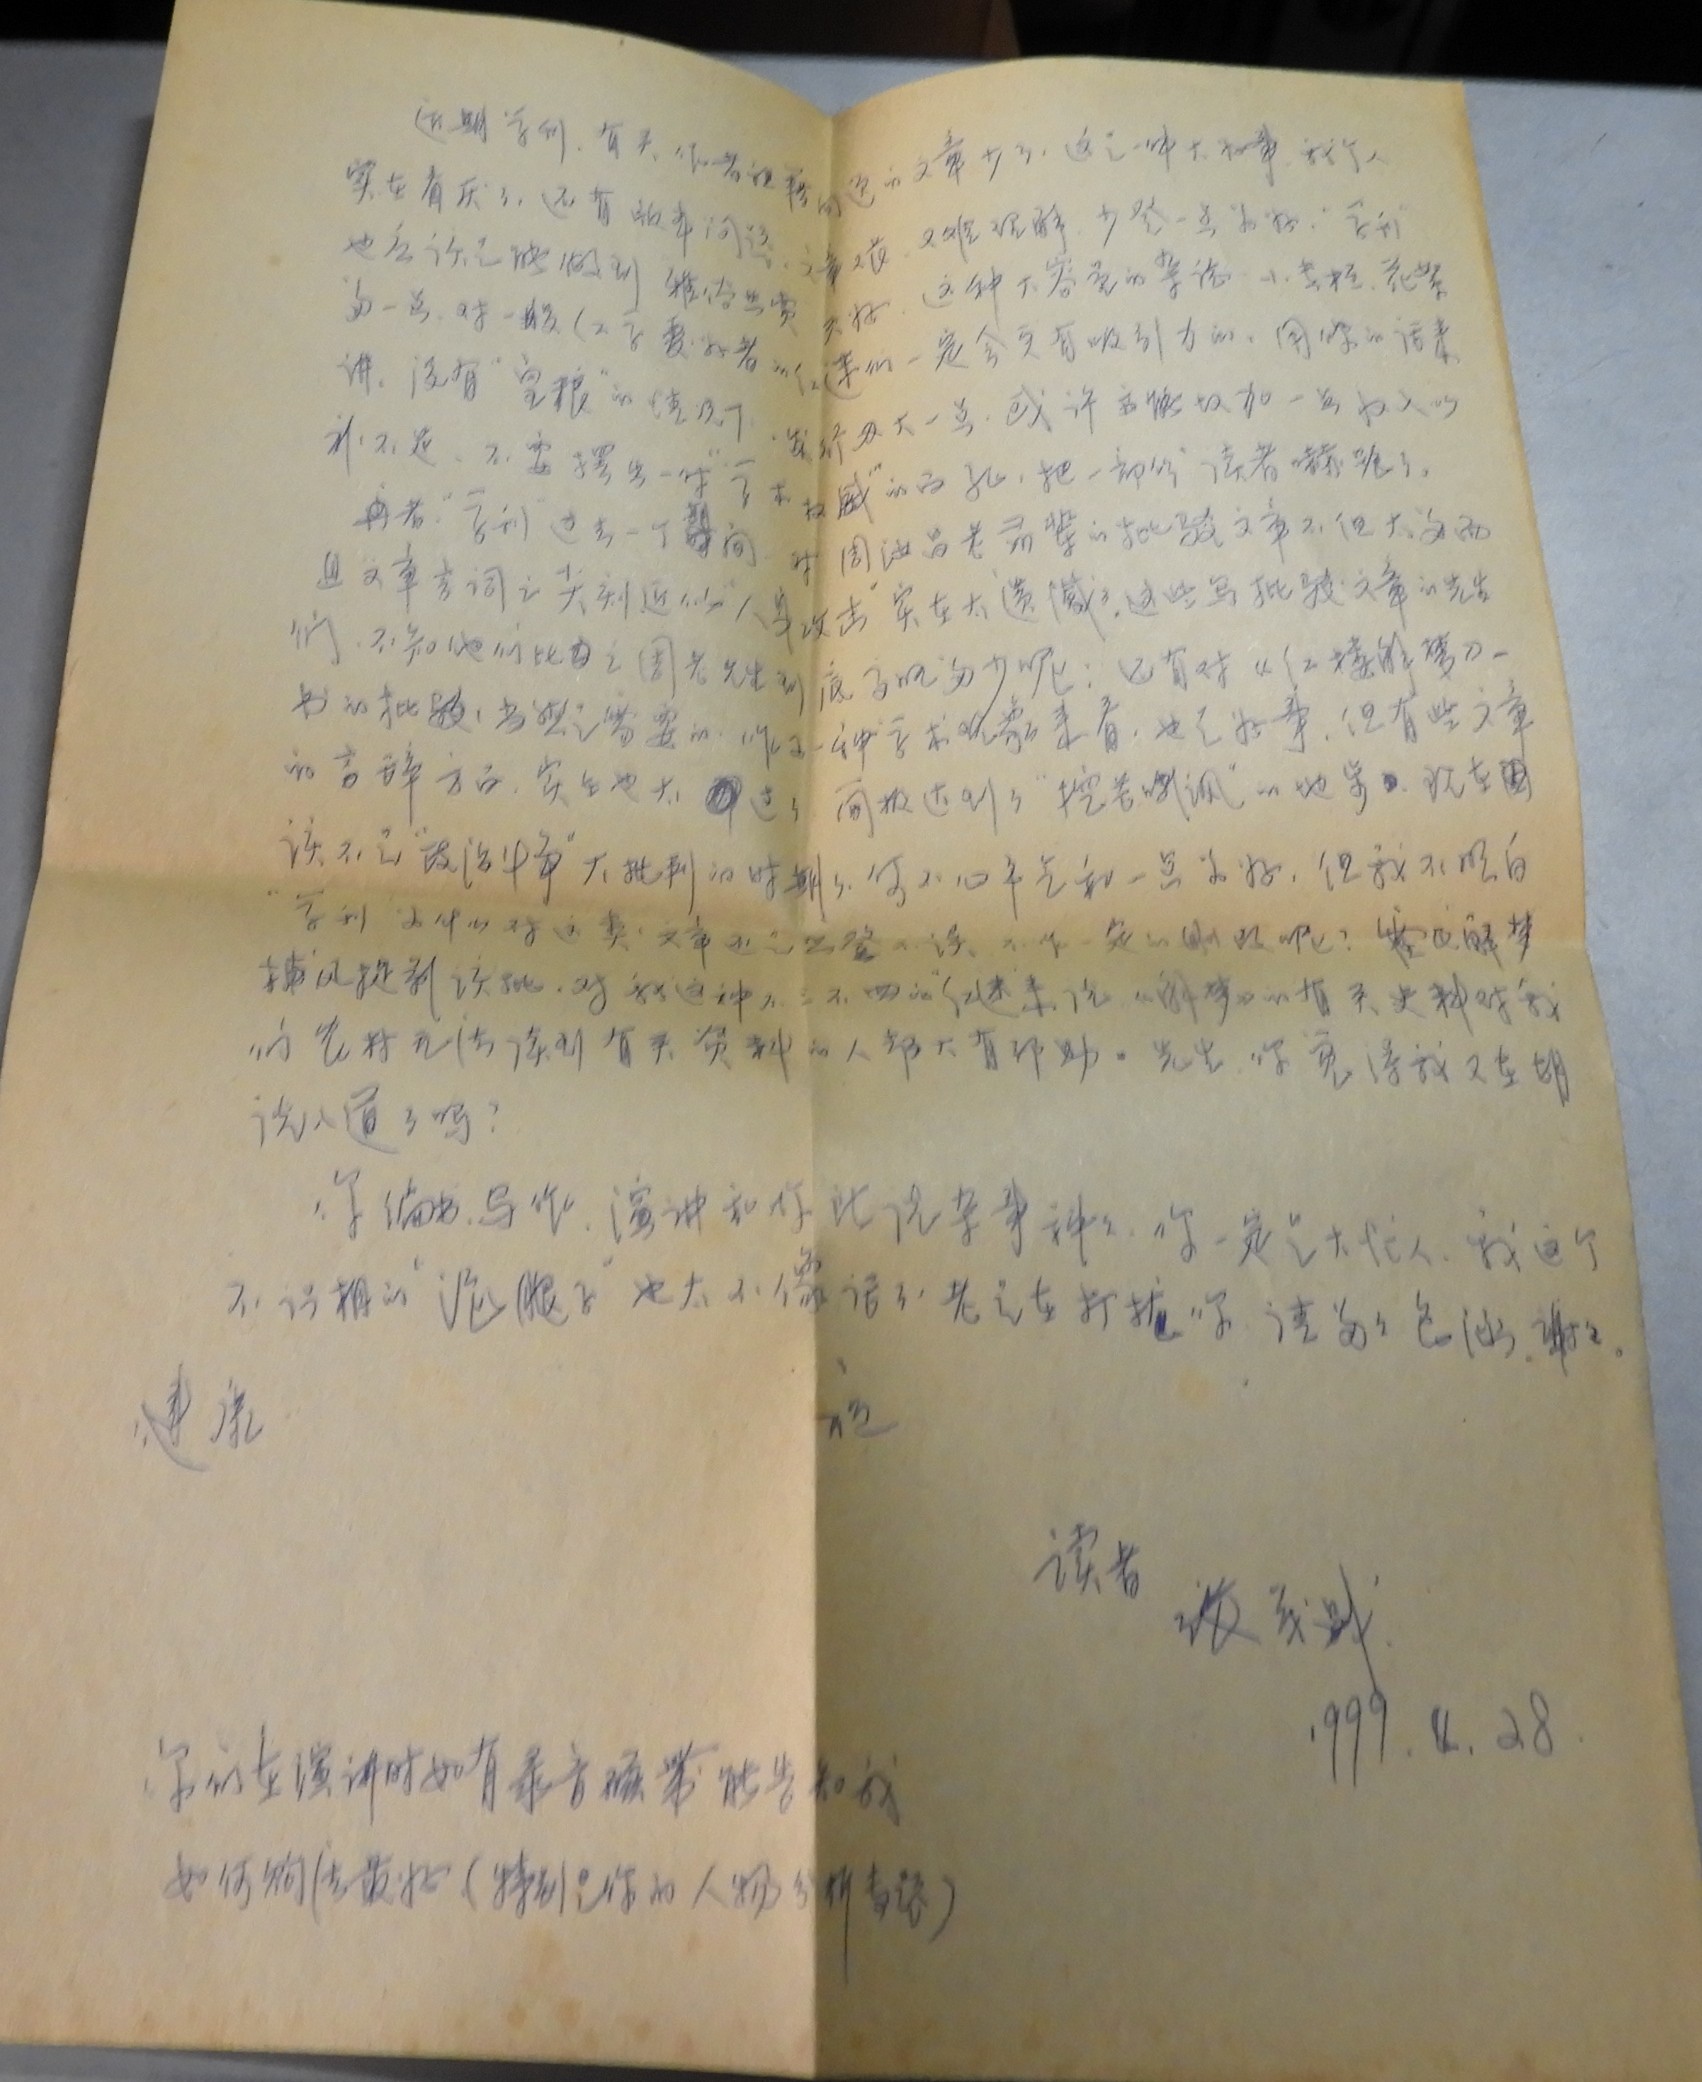 近期学刊,有关作者祖籍问题的文章少了,这是一件大好事,我个人
实在看厌了,还有版本问题,文章难,又难理解,少登一点为好,“学刊”
也应该是能做到雅俗共赏为好,这种大容量的杂志,小巷杠,花絮
多一点,对一般红学爱好者的红迷们一定会更有吸引力的。用你的话来
讲,没有“皇粮”的情况下,发行力大一点,或许亦能增加一点收入以
补不足,不要摆出一付“学术权威”的面孔,把一部分读者嚇跑了。
再者“学刊”过去一个期间,对周汝昌老前辈的批驳文章不但太多而
且文章言词之尖刻近似“人身攻击”实在太遗憾了,这些写批驳文章的先生
们,不知他们比之周老先生到底高明多少呢?还有对《红楼解梦》一
书的批驳,当然是需要的,作为一种学术现象来看,也是好事,但有些文章
的言辞方面,实在也太过了,简直达到了“挖苦嘲讽”的地步,现在
该不是“政治斗争”大批判的时期了,何不心平气和一点为好,但我不明白
“学刊”为什么对这类文章也是照登不误,不作一定的删改呢?解梦
捕风捉影该批,对我这种不三不四的“红迷”来说,《解梦》的有关史料对我
们农村无法读到有关资料的人却大有帮助。先生,你觉得我又在胡
说八道了吗?
你编书、写作、演讲和你此说杂事种种,你一定是大忙人,我这个
不识相的“泥腿子”也太不像话了,老是在打扰你,请多多包涵,谢谢。
祝
健康
读者
1999.4.28.
你们在演讲时如有录音磁带能告知我
如何购法最好(特别是你的人物分析专题)